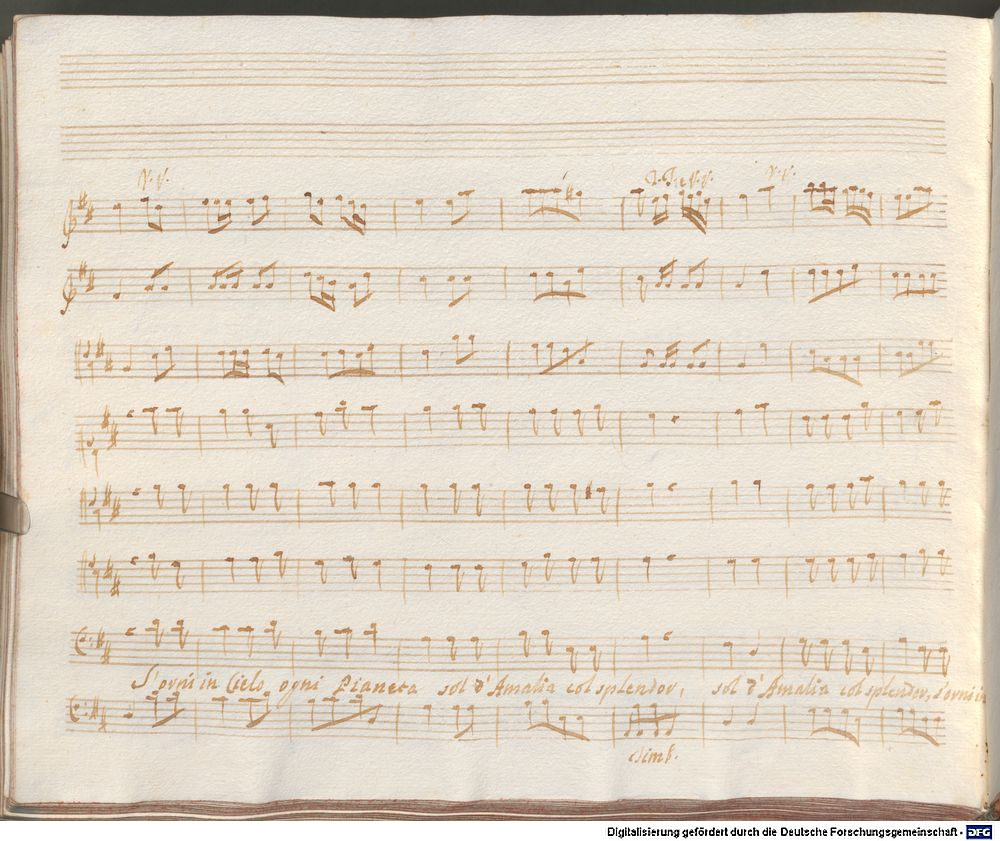 S'orni in Cielo ogni Pianeta sol d'Amalia col splendor, sol d'Amalia col splendor, s'orni in
Digitalisierung gefördert durch die Deutsche Forschungsgemeinschaft - DFG